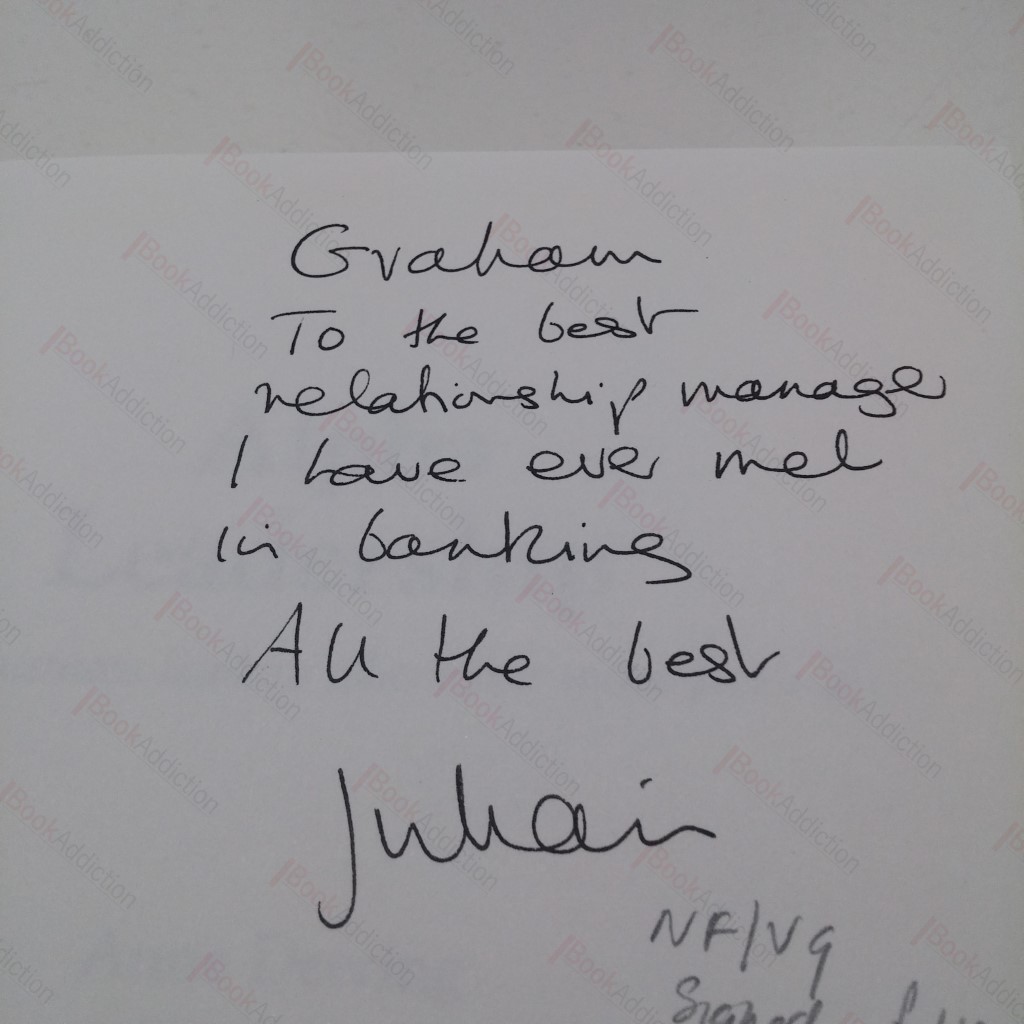 Graham
To the best
relationship manager
I have ever met
in banking
All the best
Julian
NF/VG
Signed